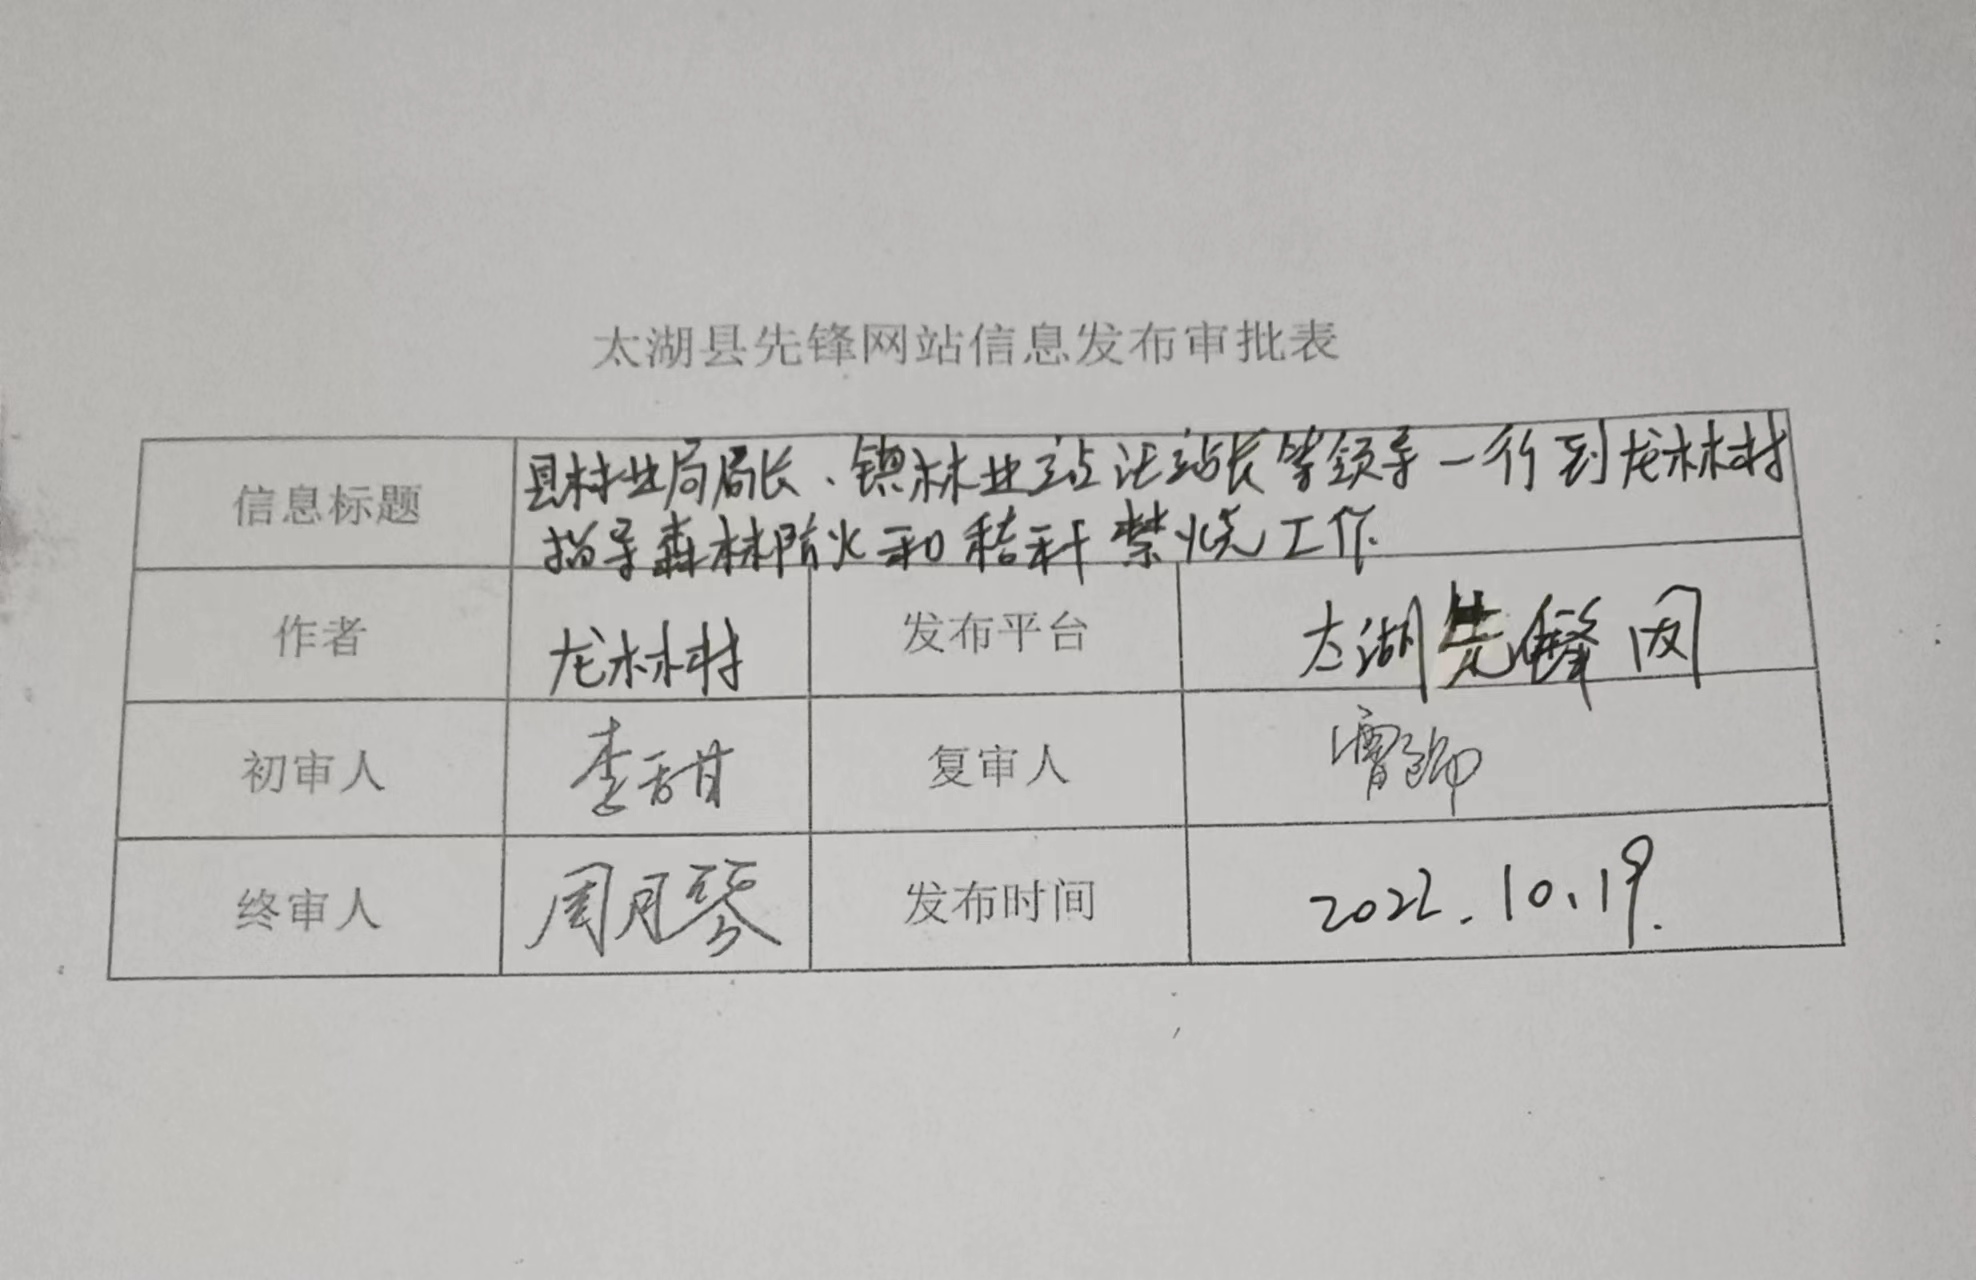 太湖县先锋网站信息发布审批表
信息标题
县林业局局长、镇林业站汪站长等领导一行到龙林村
指导森林防火和秸秆禁烧工作.
作者
龙林村
发布平台
太湖先锋网
初审人
李甜
复审人
终审人
周月琴
发布时间
2022.10.19.